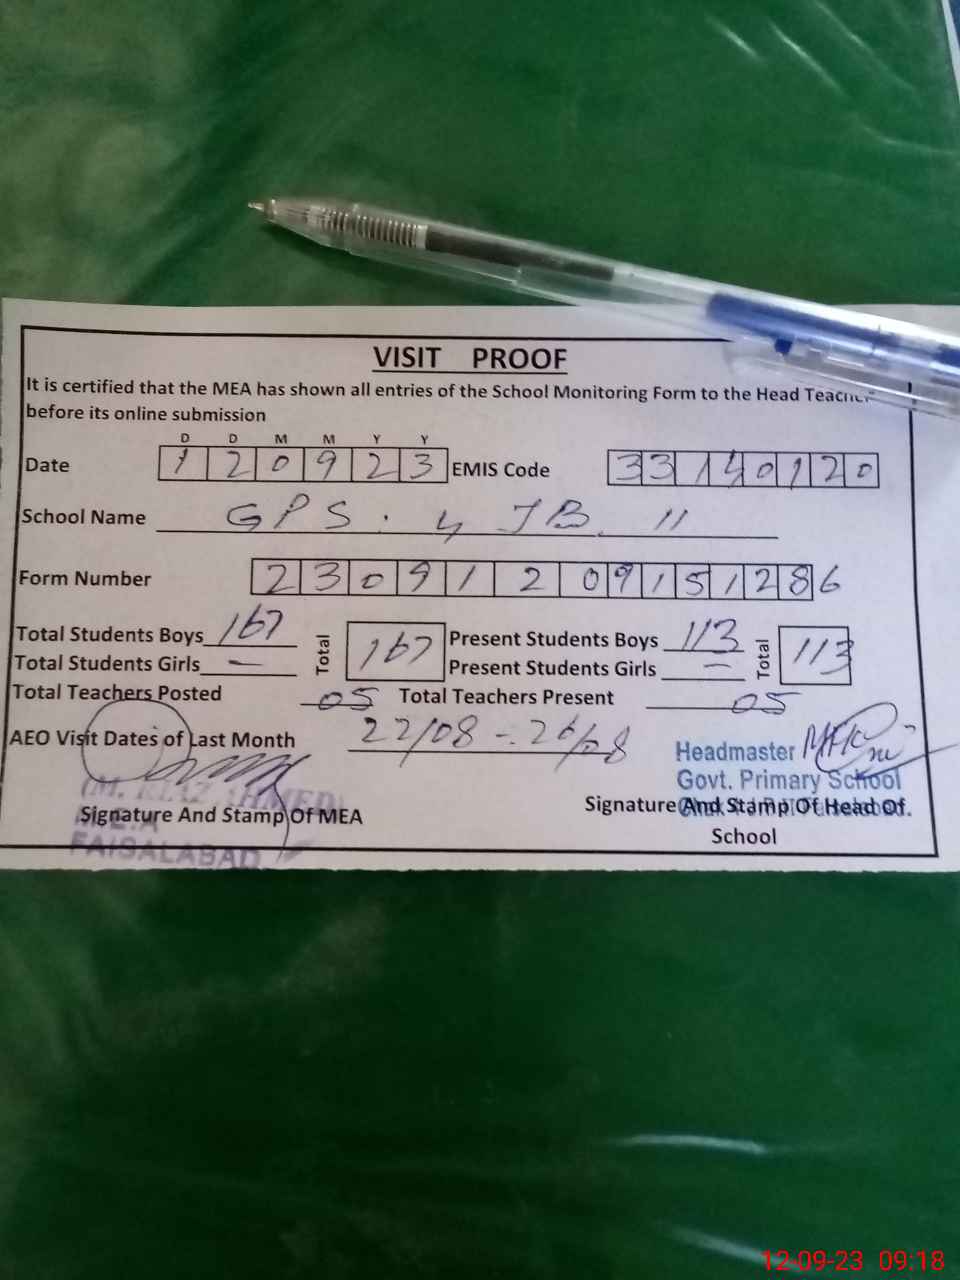 VISIT PROOF
It is certified that the MEA has shown all entries of the School Monitoring Form to the Head Teacher
before its online submission
D D M M Y Y
Date 1 2 0 9 2 3 EMIS Code 3 3 1 4 0 1 2 0
School Name GPS. 4 JB II
Form Number 2 3 0 9 1 2 0 9 1 5 1 2 8 6
Total Students Boys 167 Total 167 Present Students Boys 113 Total 113
Total Students Girls — Present Students Girls —
Total Teachers Posted 05 Total Teachers Present 05
AEO Visit Dates of Last Month 22/08 - 26/08
Headmaster
Govt. Primary School
(M. RIAZ AHMED)
Signature And Stamp Of MEA
Signature And Stamp Of Head Of
School
M.E.A
FAISALABAD
12-09-23 09:18